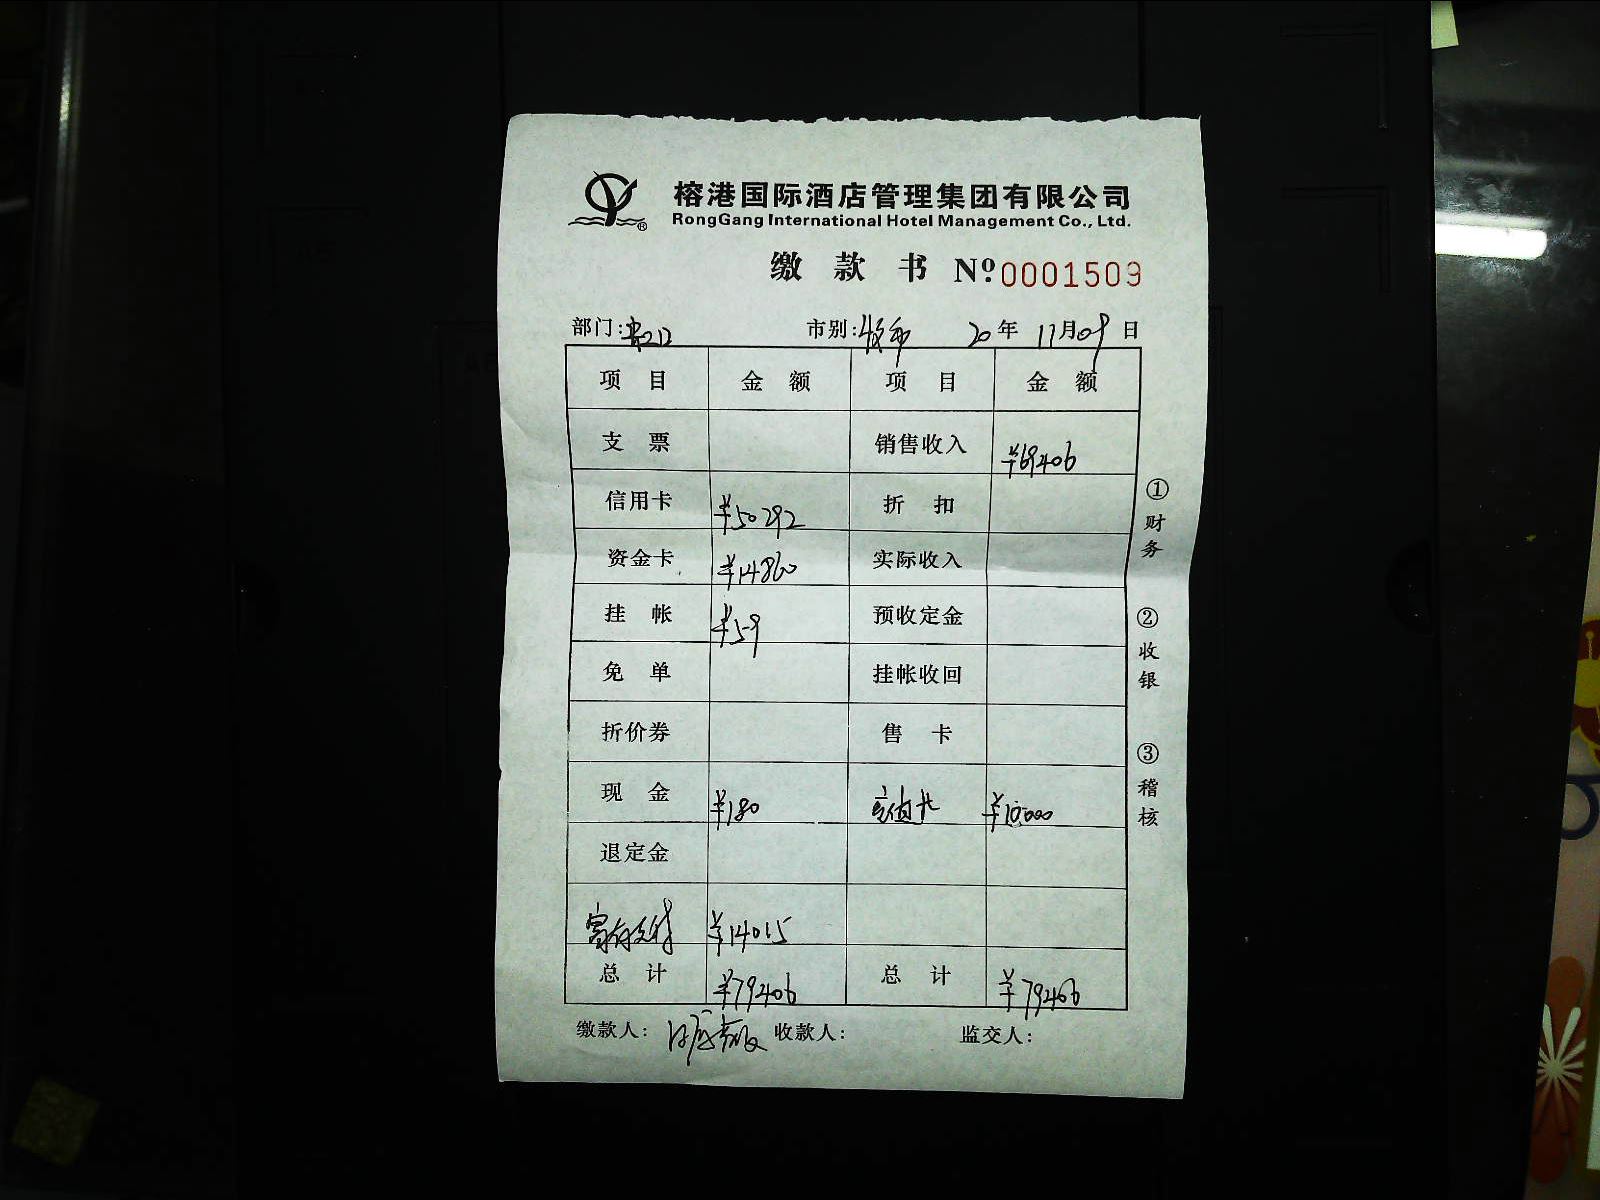 榕港国际酒店管理集团有限公司
RongGang International Hotel Management Co., Ltd.
缴 款 书 Nº 0001509
部门: 市别: 20 年 11月09日
项 目 金 额 项 目 金 额
支 票 销售收入 ¥69406
信用卡 ¥50292 折 扣
资金卡 ¥14860 实际收入
挂 帐 ¥59 预收定金
免 单 挂帐收回
折价券 售 卡
现 金 ¥180 充值卡 ¥10000
退定金
¥14015
总 计 ¥79406 总 计 ¥79406
缴款人: 收款人: 监交人:
①财务
②收银
③稽核